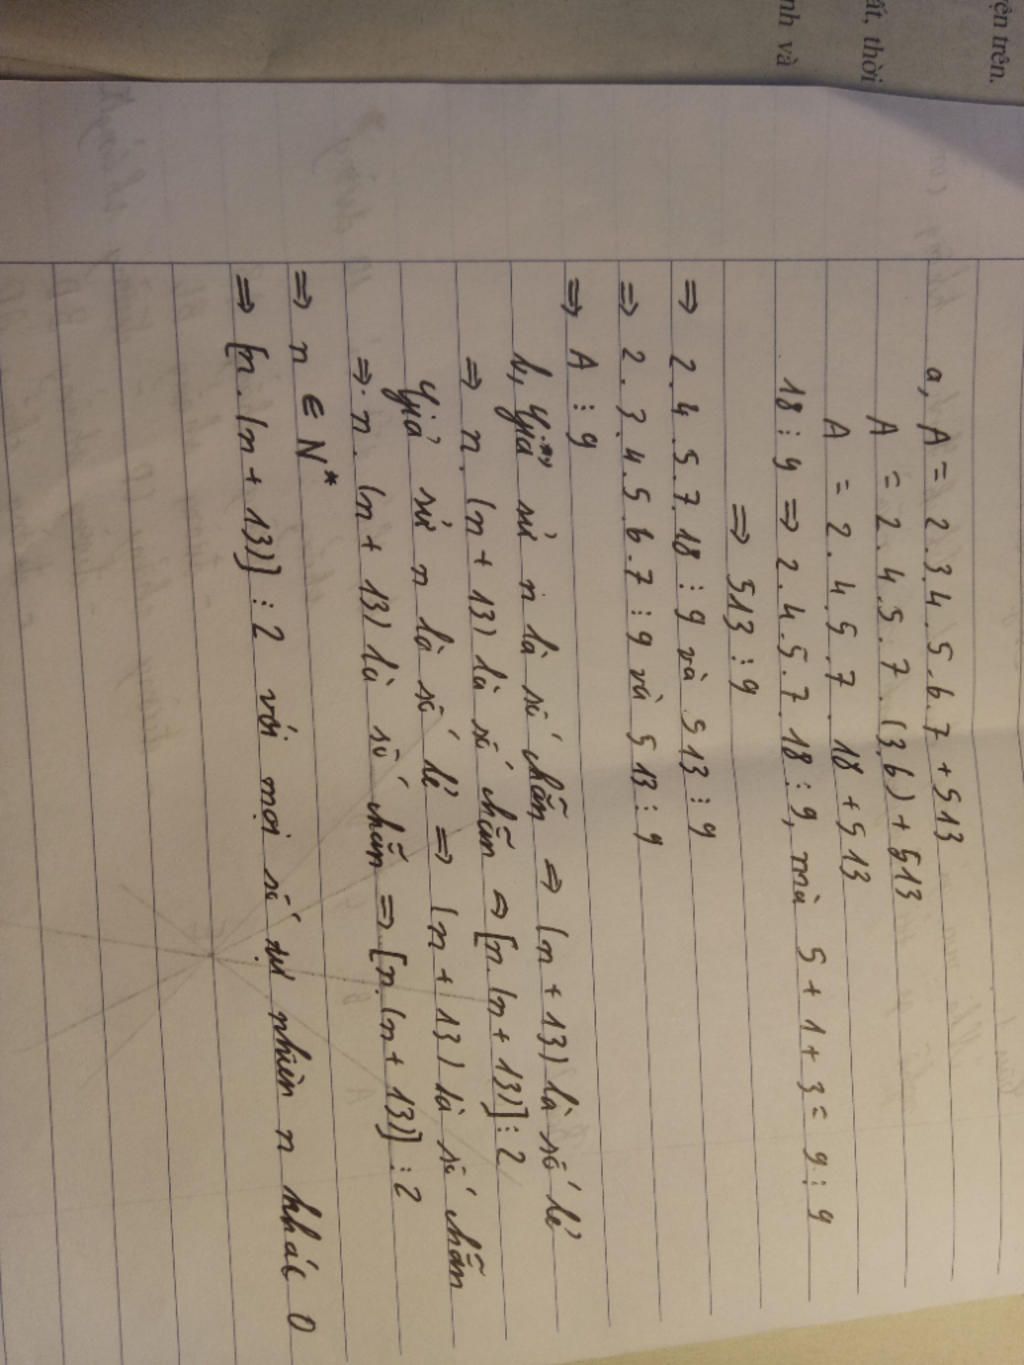 ện trên.
ất, thời
nh và
a, A = 2.3.4.5.6.7 + 513
A = 2.4.5.7.(3.6) + 513
A = 2.4.5.7.18 + 513
18 ⋮ 9 => 2.4.5.7.18 ⋮ 9, mà 5 + 1 + 3 = 9 ⋮ 9
=> 513 ⋮ 9
=> 2.4.5.7.18 ⋮ 9 và 513 ⋮ 9
=> 2.3.4.5.6.7 ⋮ 9 và 513 ⋮ 9
=> A ⋮ 9
b, Giả sử n là số chẵn => (n + 13) là số lẻ
=> n.(n + 13) là số chẵn => [n.(n + 13)] ⋮ 2
Giả sử n là số lẻ => (n + 13) là số chẵn
=> n.(n + 13) là số chẵn => [n.(n + 13)] ⋮ 2
=> n ∈ N*
=> [n.(n + 13)] ⋮ 2 với mọi số tự nhiên n khác 0